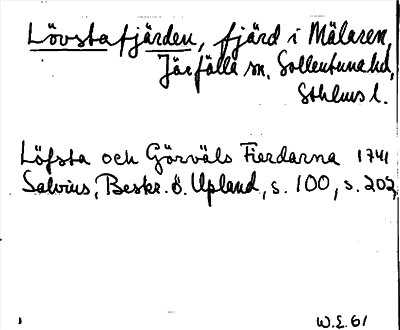 Lövstafjärden, fjärd i Mälaren,
Järfälla sn, Sollentuna hd,
Sthlms l.
Löfsta och Görväls Fierdarna 1741
Salvius, Beskr. ö. Upland, s. 100, s. 202,
W.E. 61